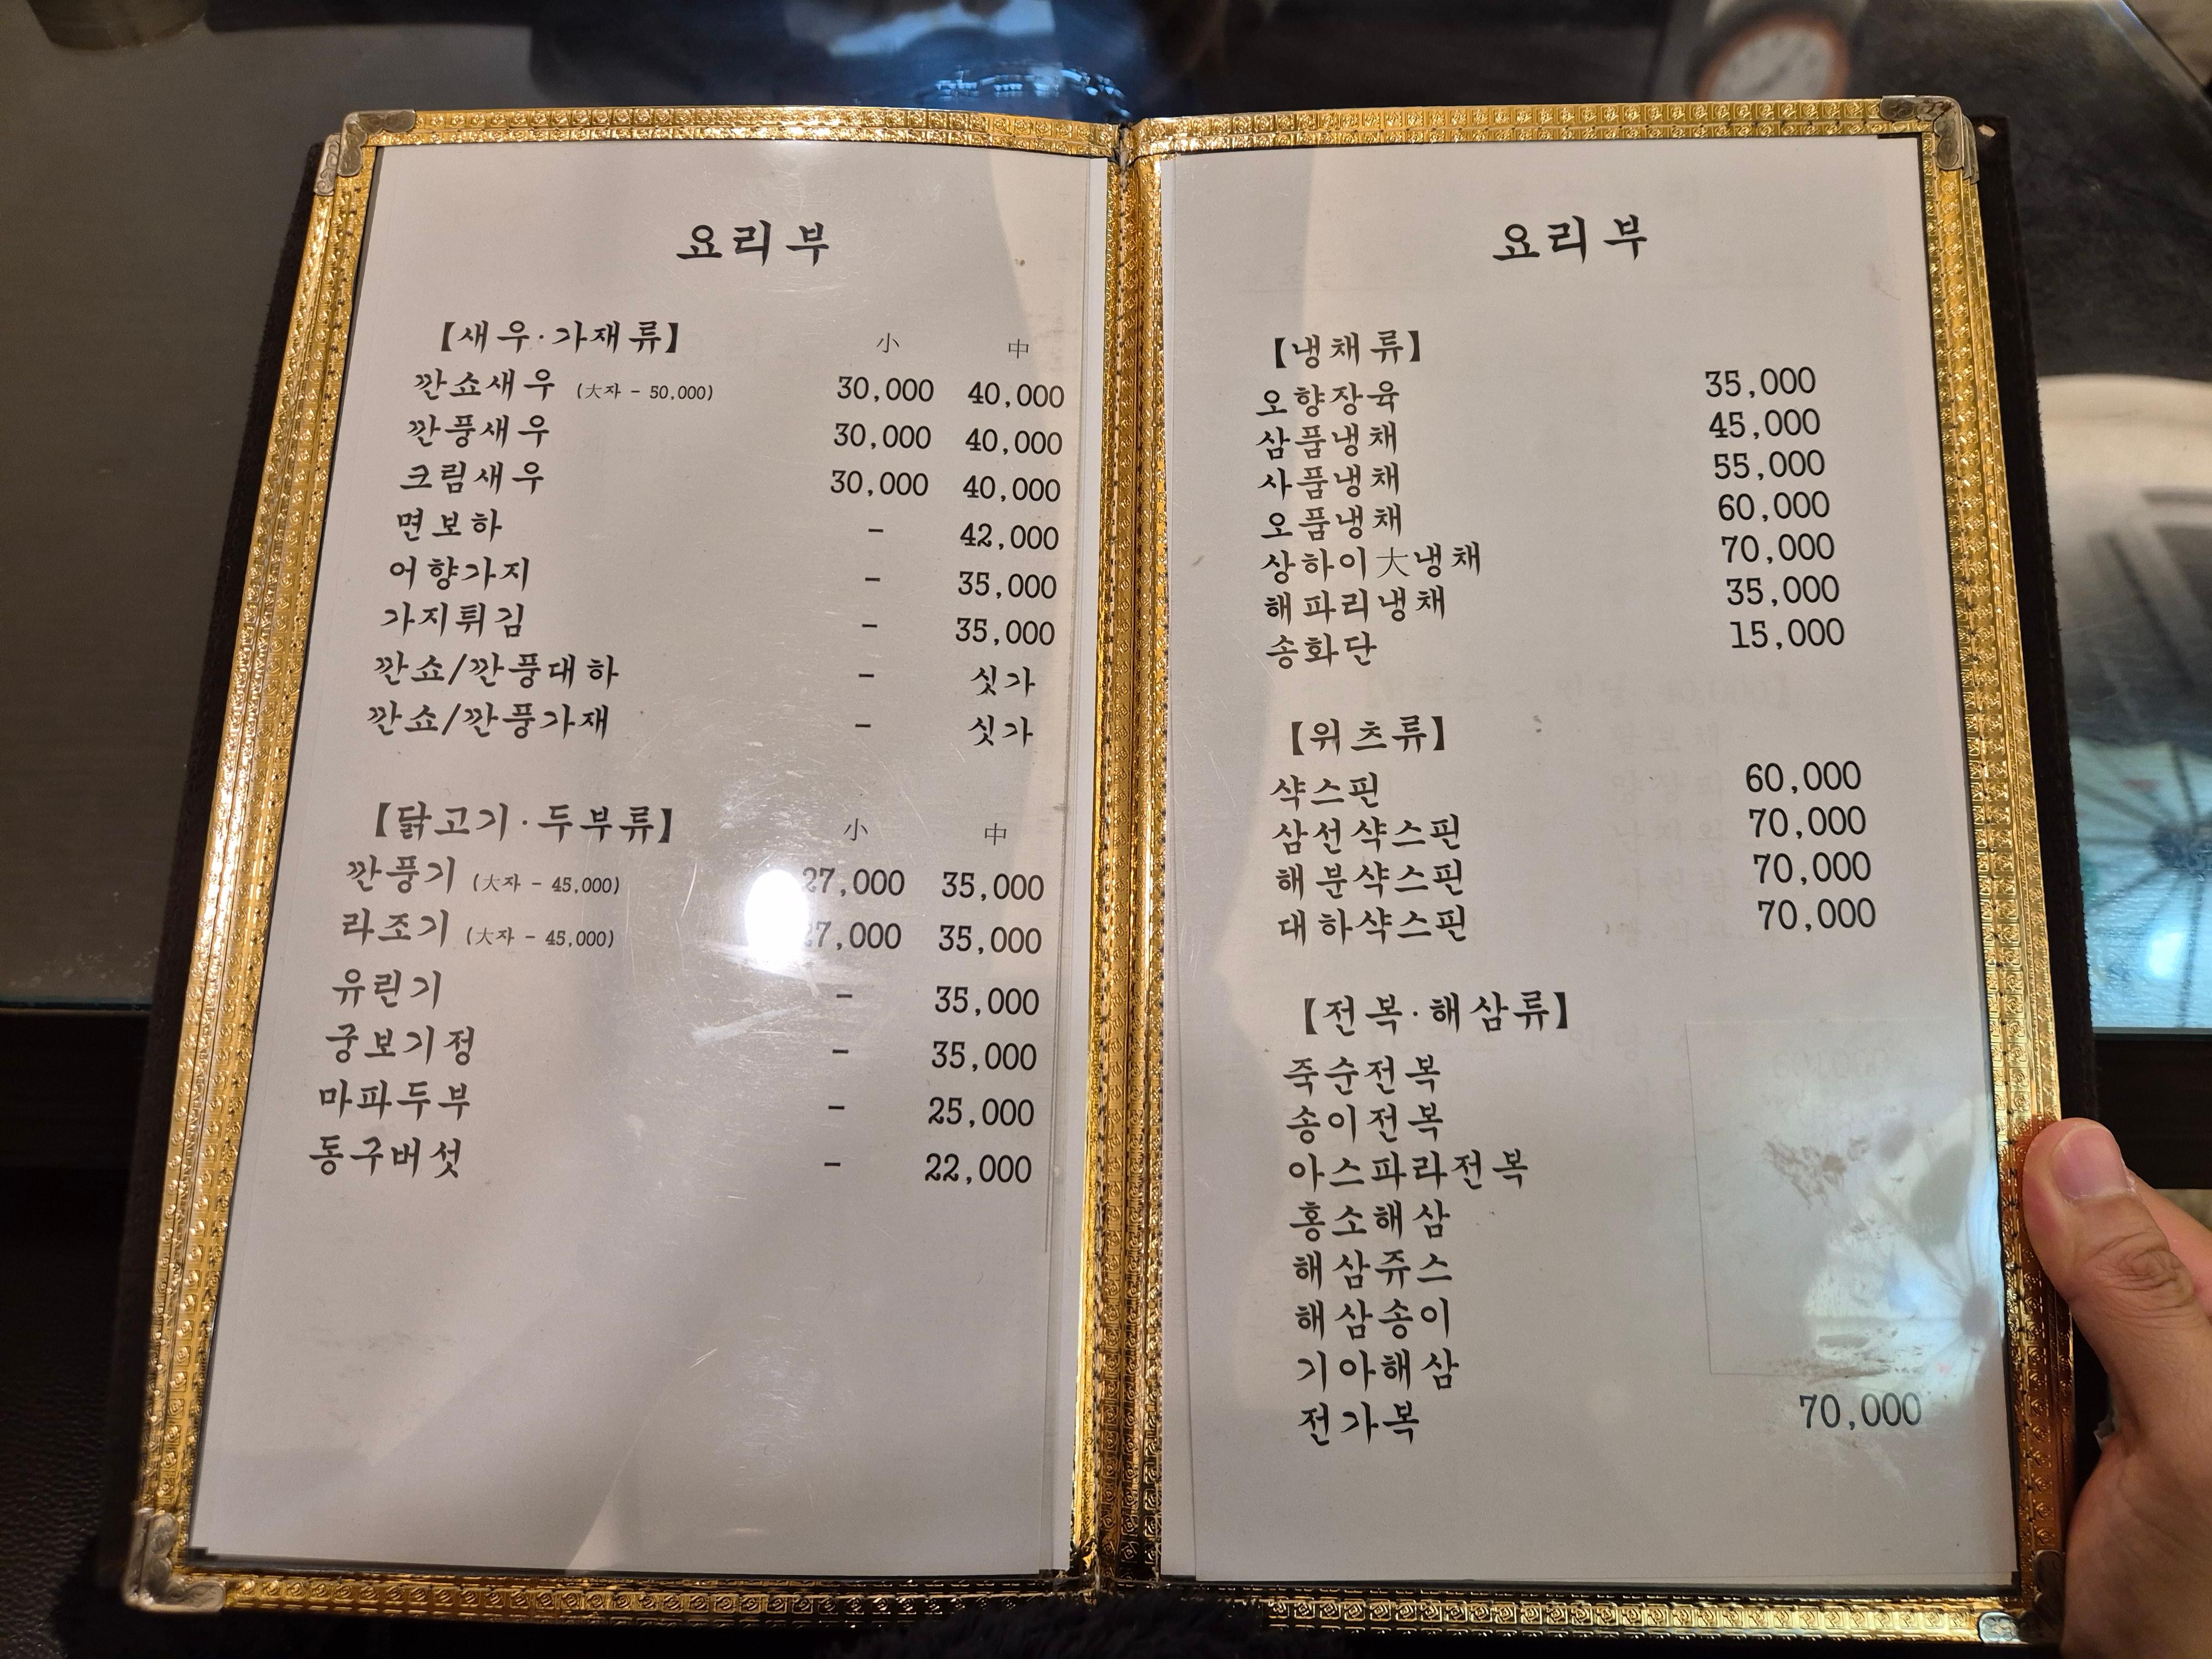 요리부
【새우·가재류】 小 中
깐쇼새우 (大자 - 50,000) 30,000 40,000
깐풍새우 30,000 40,000
크림새우 30,000 40,000
면보하 - 42,000
어향가지 - 35,000
가지튀김 - 35,000
깐쇼/깐풍대하 - 싯가
깐쇼/깐풍가재 - 싯가
【닭고기·두부류】 小 中
깐풍기 (大자 - 45,000) 27,000 35,000
라조기 (大자 - 45,000) 27,000 35,000
유린기 - 35,000
궁보기정 - 35,000
마파두부 - 25,000
동구버섯 - 22,000
요리부
【냉채류】
오향장육 35,000
삼품냉채 45,000
사품냉채 55,000
오품냉채 60,000
상하이大냉채 70,000
해파리냉채 35,000
송화단 15,000
【위츠류】
샥스핀 60,000
삼선샥스핀 70,000
해분샥스핀 70,000
대하샥스핀 70,000
【전복·해삼류】
죽순전복
송이전복
아스파라전복
홍소해삼
해삼쥬스
해삼송이
기아해삼
전가복 70,000